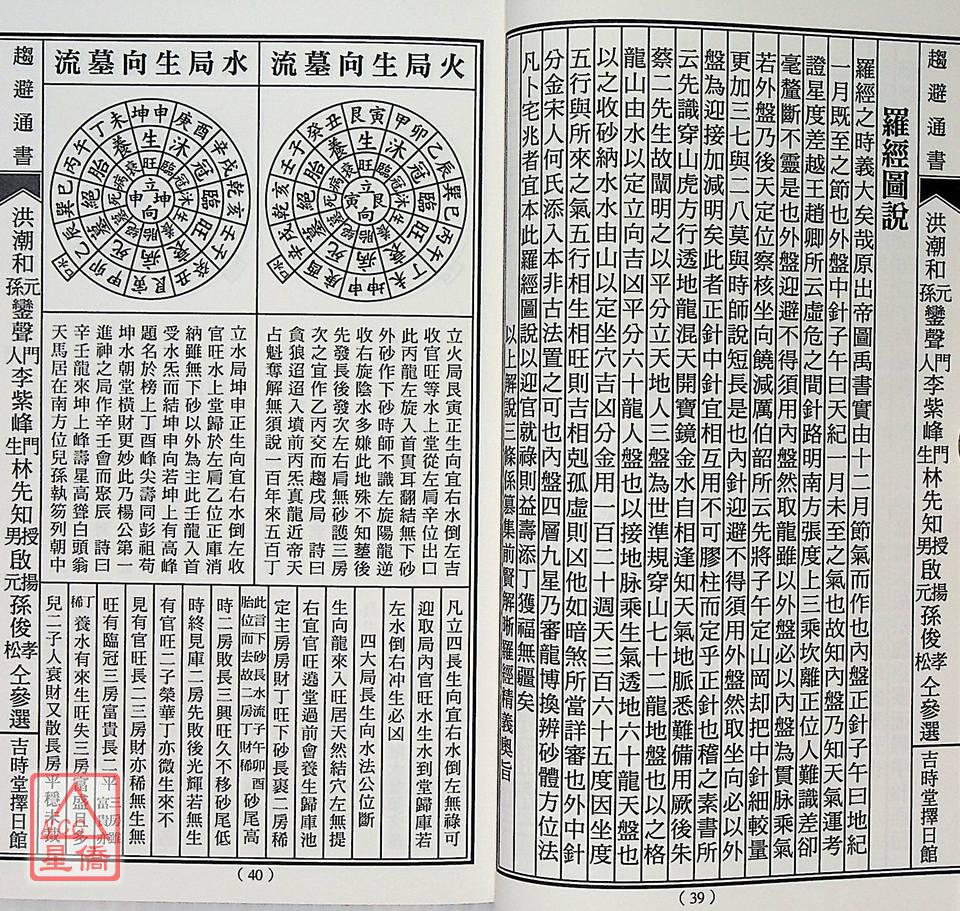 趨避通書 洪潮和 元孫鑾聲 門人李紫峰 門生林先知 授男啟揚 元孫俊松孝 仝參選 吉時堂擇日館
羅經圖說
羅經之時義大矣哉原出帝圖禹書實由十二月節氣而作也內盤正針子午曰地紀
一月既至之節也外盤中針子午曰天紀一月未至之氣也故知內盤乃知天氣運考
證星度差越王趙卿所云虛危之間針路明南方張度上三乘坎離正位人難識差卻
毫釐斷不靈是也外盤迎避不得須用內盤然取龍雖以外盤必以內盤為貫脉乘氣
若外盤乃後天定位察核坐向饒減厲伯韶所云先將子午定山岡却把中針細較量
更加三七與二八莫與時師說短長是也內針迎避不得須用外盤然取坐向必以外
盤為迎接加減明矣此者正針中針宜相互用不可膠柱而定乎正針也稽之素書所
云先識穿山虎方行透地龍混天開寶鏡金水自相逢知天氣地脈悉難備用厥後朱
蔡二先故闡明之以平分立天地人三盤為世準規穿山七十二龍地盤也以之格
龍山由水以定立向吉凶平分六十龍人盤也以接地脉乘生氣透地六十龍天盤也
以之收砂納水水由山以定坐穴吉凶分金用一百二十週天三百六十五度因坐度
五行與所來之氣五行相生相旺則吉相剋孤虛則凶他如暗煞所當詳審也外中針
分金宋人何氏添入本非古法置之可也內盤四層九星乃審龍博換辨砂體方位法
凡卜宅兆者宜本此羅經圖說以迎官就祿則益壽添丁獲福無疆矣
以上解說三條係纂集前賢解晰羅經精義奧旨
(39)
火局生向墓流
立艮寅向
艮寅甲卯乙辰巽巳丙午丁未坤申庚酉辛戌乾亥壬子癸丑
立火局艮寅正生向宜右水倒左吉
收官旺等水上堂從左肩辛位出口
此丙龍左旋入首貫耳翻結無下砂
外砂作下砂時師不識左旋陽龍逆
收右旋陰水多嫌此地殊不知蓥後
先發長後發次左右肩無砂護三房
次之宜作乙丙交而趨戌局 詩曰
貪狼迢迢入墳前丙炁真龍近帝天
占魁奪解無須說一百年來五百丁
水局生向墓流
立坤申向
坤申庚酉辛戌乾亥壬子癸丑艮寅甲卯乙辰巽巳丙午丁未
立水局坤申正生向宜右水倒左收
官旺水上堂歸於左肩乙位正庫消
納雖無下砂以外為主此壬龍入首
受水炁而結坤申向若坤上有高峰
題名於榜上丁酉峰尖壽同彭祖苟
坤水朝堂橫財更妙此乃楊公第一
進神之局作辛壬會而聚辰 詩曰
辛壬龍來坤上峰壽星高聳白頭翁
天馬居在南方位兒孫執笏列朝中
凡立四長生向宜右水倒左無祿可
迎取局內官旺水生水到堂歸庫若
左水倒右冲生必凶
四大局長生向水法公位斷
生向龍來入旺居天然結穴左無提
右宜官旺遶堂過前會養生歸庫池
定主房房財丁旺下砂長裹二房稀
此言下砂長水流子午卯酉胎位而去故二房丁財稀 砂尾高
時二房敗長三興旺久不移砂尾低
時終見庫二房先敗後光輝若無生
有官旺二子榮華丁亦微生來不
見有官旺長二三房財亦稀無生無
旺有臨冠三房富貴長二平
丁稀養水有來生旺失三房富盛且多
兒二子人衰財又散長房平穩未
趨避通書 洪潮和 元孫鑾聲 門人李紫峰 門生林先知 授男啟揚 元孫俊松孝 仝參選 吉時堂擇日館
(40)
星僑